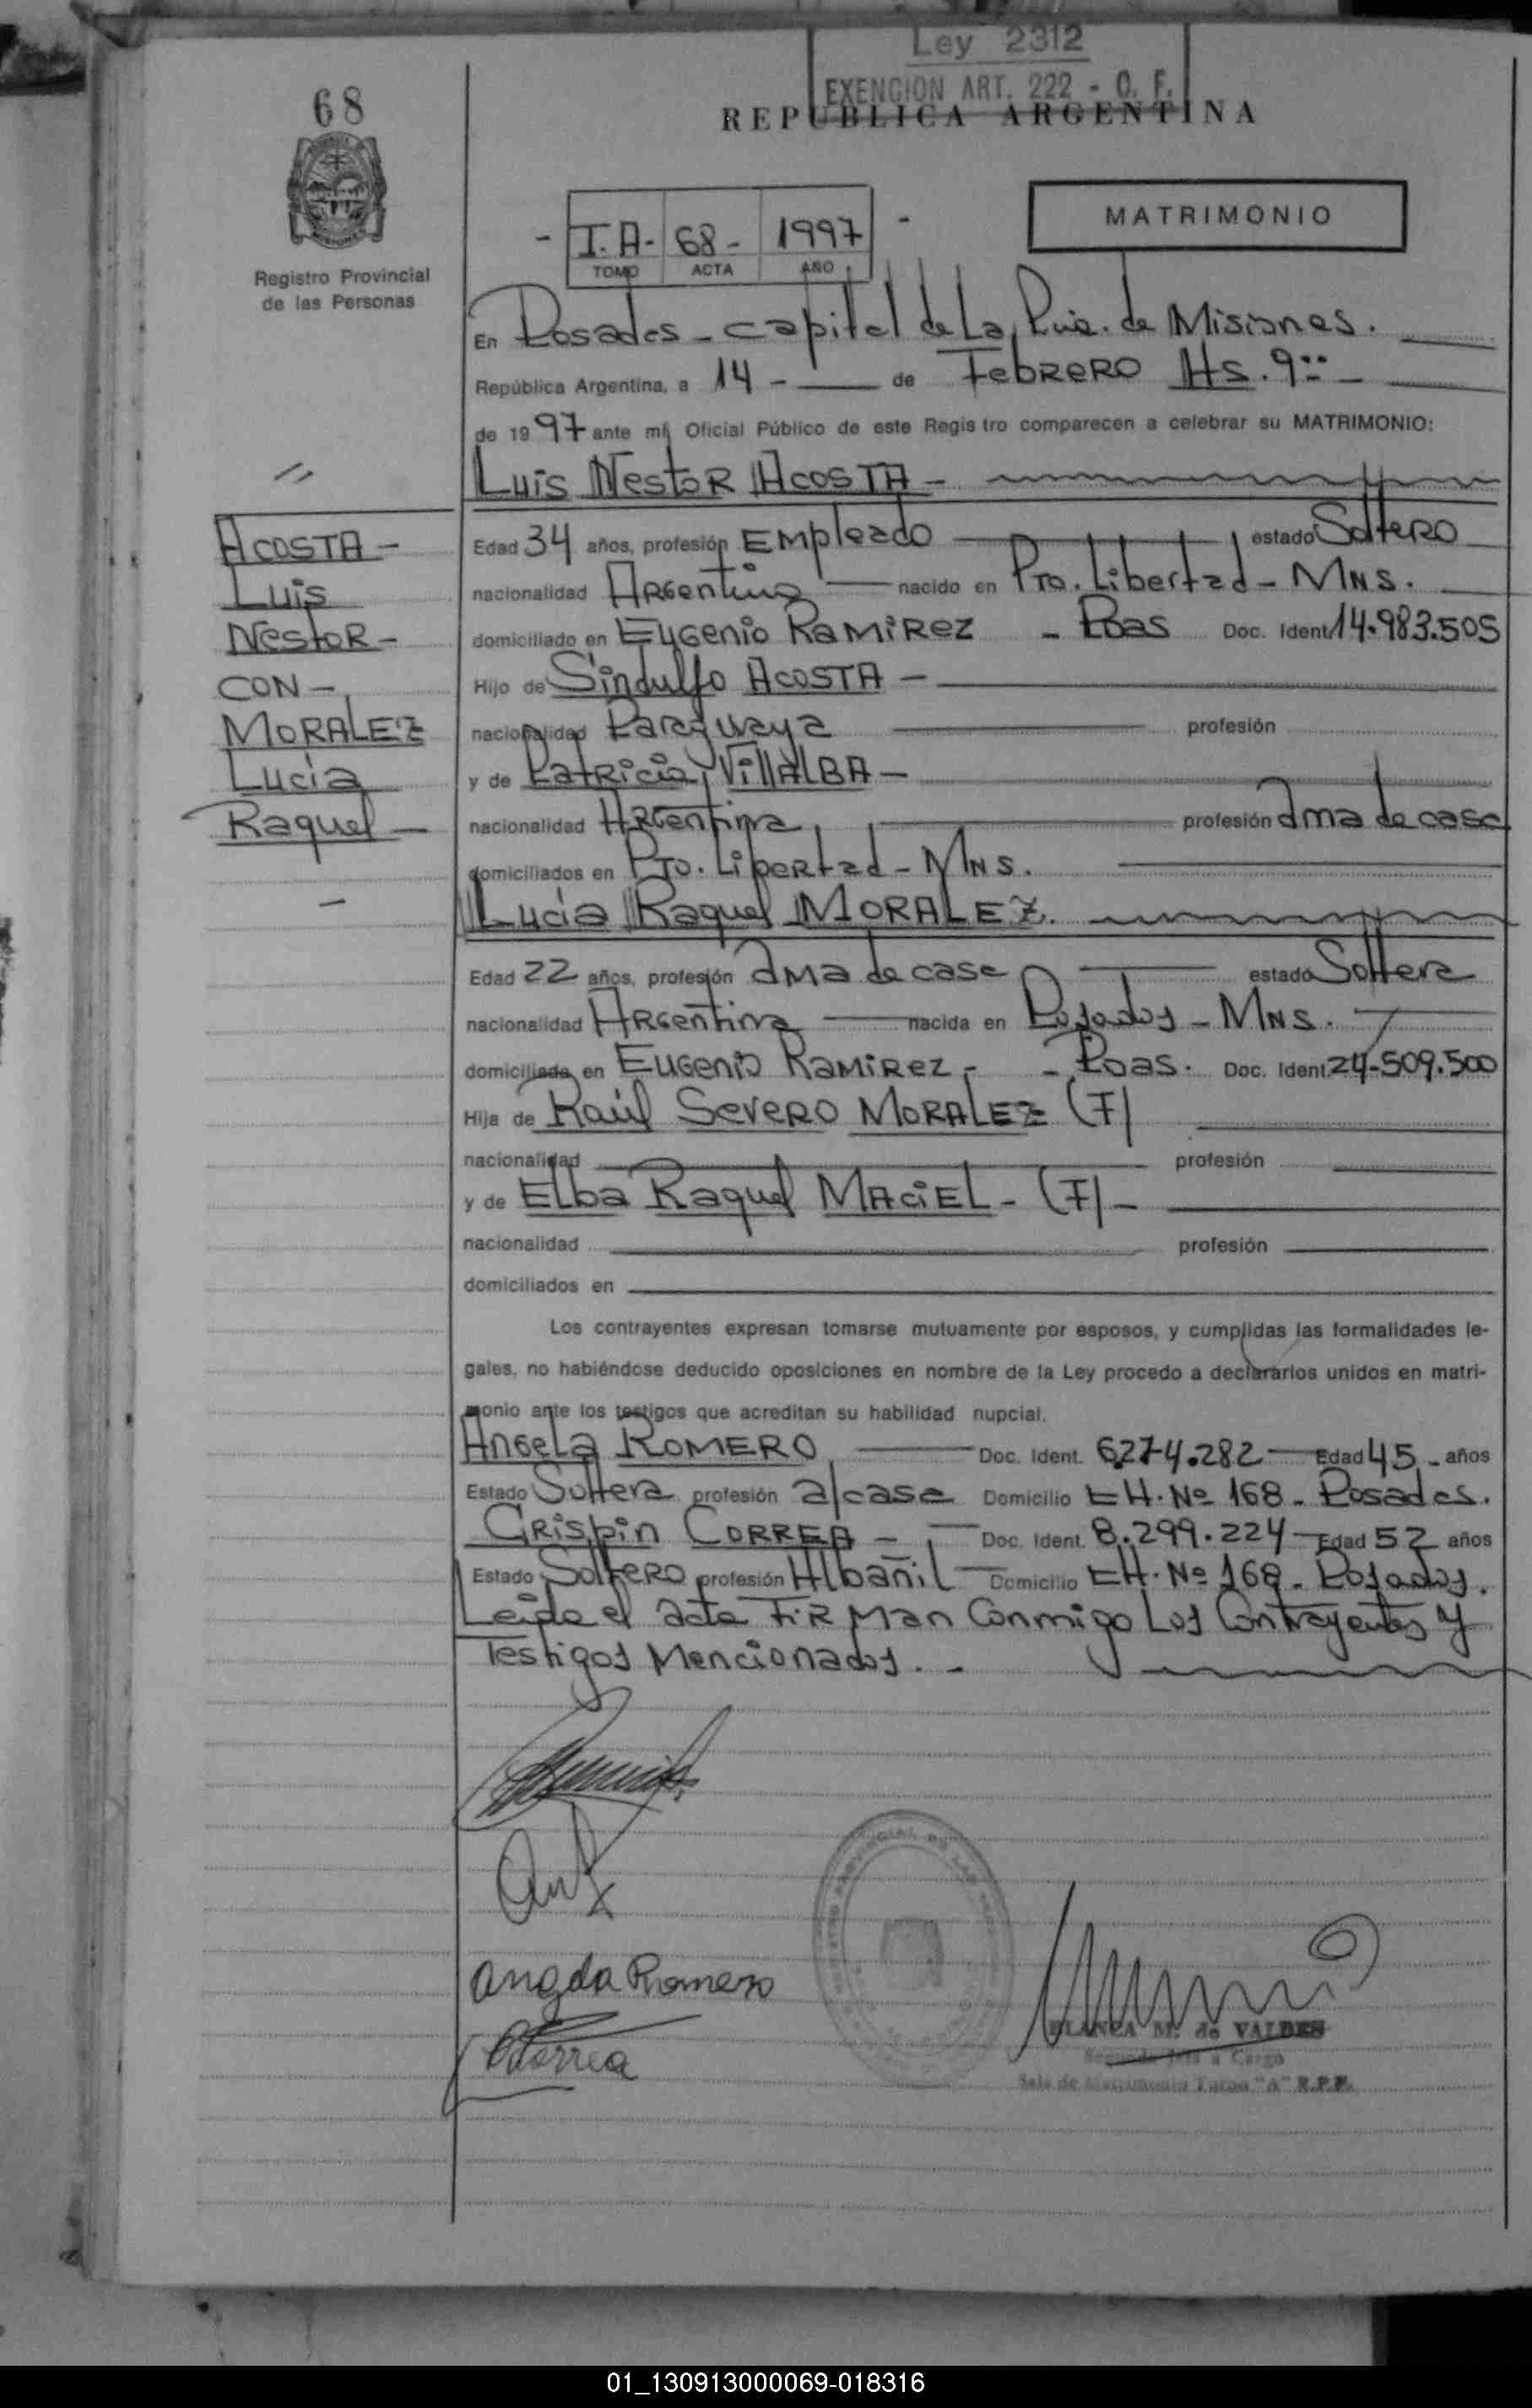 Ley 2312
EXENCION ART. 222 - C. F.
REPUBLICA ARGENTINA
68
MISIONES
Registro Provincial
de las Personas
MATRIMONIO
- I. A- 68- 1997 -
TOMO ACTA AÑO
En Posadas - capital de La Pcia. de Misiones.
República Argentina, a 14 - de Febrero Hs. 9:00
de 1997 ante mí, Oficial Público de este Registro comparecen a celebrar su MATRIMONIO:
Luis Nestor ACOSTA -
ACOSTA -
Luis
Nestor -
CON -
MORALEZ
Lucia
Raquel -
Edad 34 años, profesión Empleado estado Soltero
nacionalidad Argentina nacido en Pto. Libertad - Mns.
domiciliado en Eugenio Ramirez - Pdas Doc. Ident 14.983.505
Hijo de Sindulfo ACOSTA -
nacionalidad Paraguaya profesión
y de Patricia VillALBA -
nacionalidad Argentina profesión ama de casa
domiciliados en Pto. Libertad - Mns.
Lucia Raquel MORALEZ.
Edad 22 años, profesión ama de casa estado Soltera
nacionalidad Argentina nacida en Posadas - Mns.
domiciliada en Eugenio Ramirez - - Pdas. Doc. Ident 24.509.500
Hija de Raúl Severo MORALEZ (F)
nacionalidad profesión
y de Elba Raquel MACIEL - (F) -
nacionalidad profesión
domiciliados en
Los contrayentes expresan tomarse mutuamente por esposos, y cumplidas las formalidades le-
gales, no habiéndose deducido oposiciones en nombre de la Ley procedo a declararlos unidos en matri-
monio ante los testigos que acreditan su habilidad nupcial.
Angela ROMERO Doc. Ident. 6.274.282 Edad 45 - años
Estado Soltera profesión a/casa Domicilio CH. Nº 168 - Posadas.
Crispin CORREA - Doc. Ident. 8.299.224 Edad 52 años
Estado Soltero profesión Albañil Domicilio CH. Nº 168 - Posadas.
Leida el acta firman Conmigo Los Contrayentes y
Testigos Mencionados. -
Angela Romero
Correa
BLANCA M. de VALDES
Segundo Jefe a Cargo
Sala de Matrimonio Turno "A" R.P.P.
01_130913000069-018316